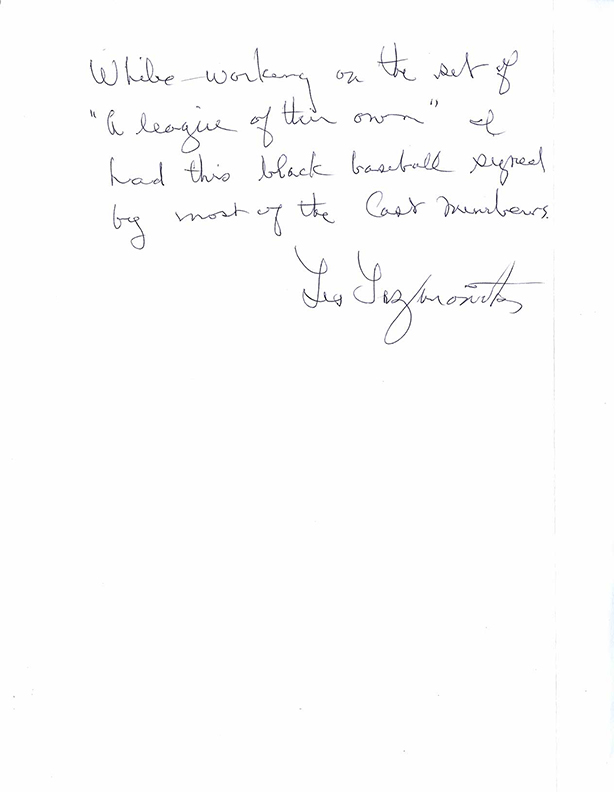 While working on the set of
"A league of their own" I
had this black baseball signed
by most of the Cast Members.
Les Lazarowitz